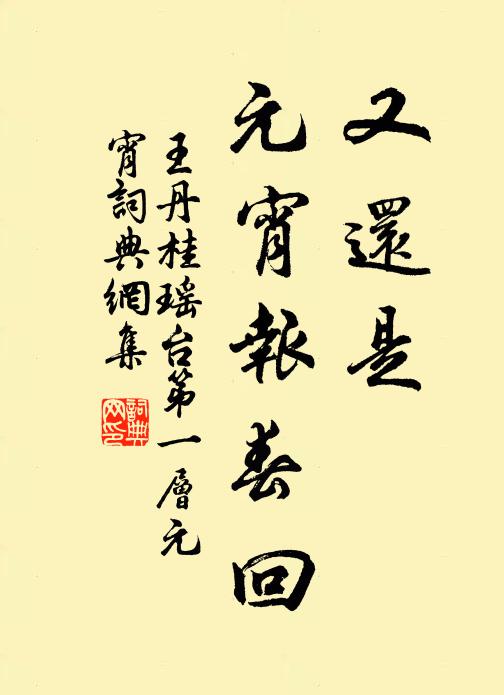 又還是
元宵報春回
王丹桂瑶台第一層元
宵詞典網集
詞典
网印